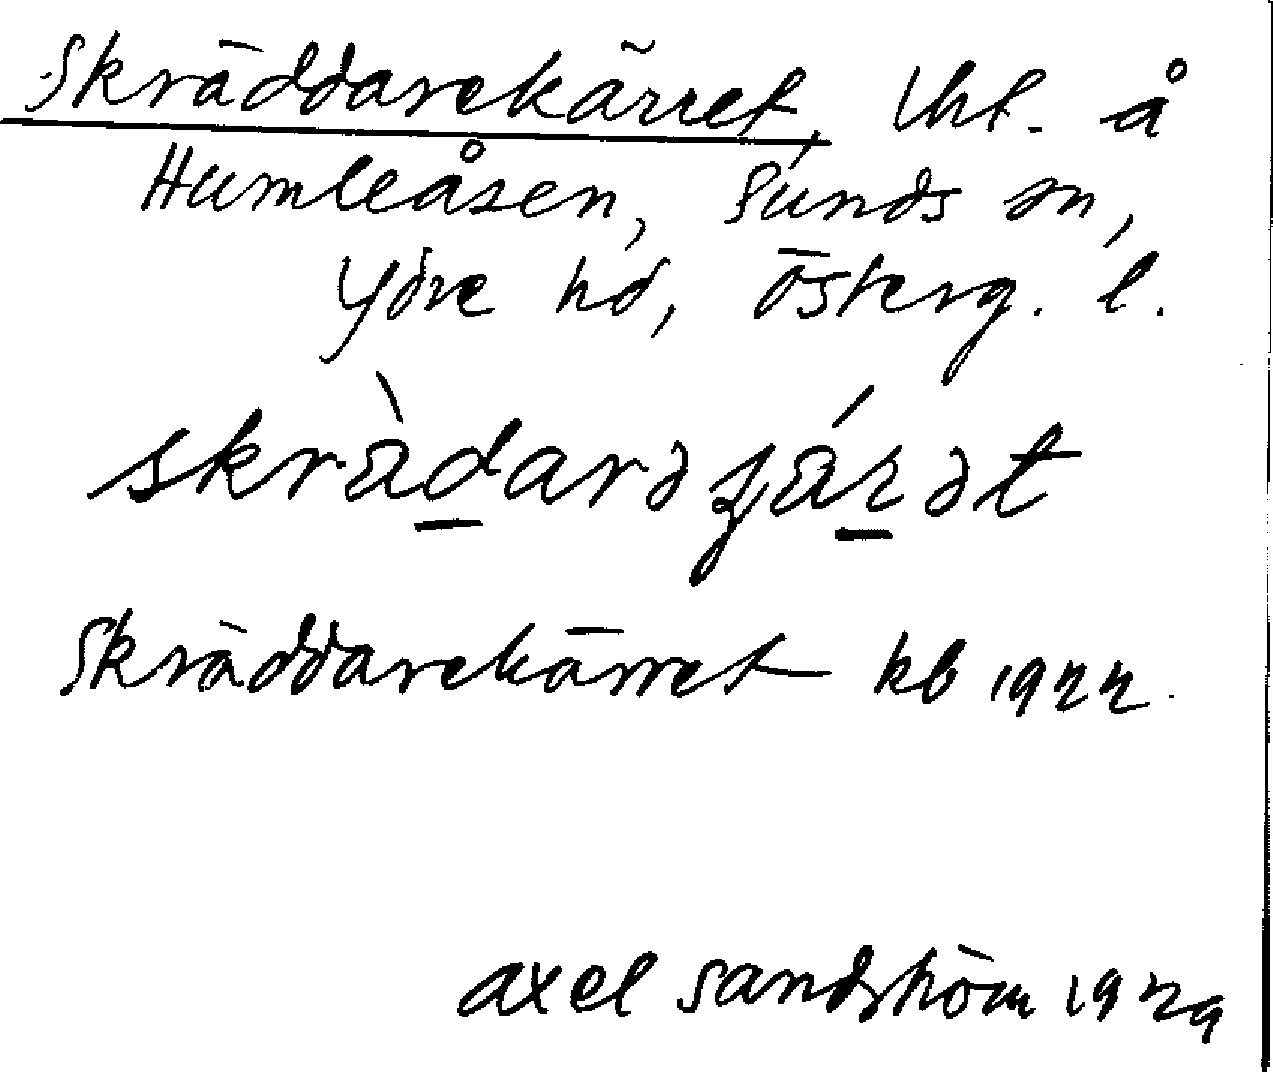 Skräddarekärret, lht. å
Humleåsen, Sunds sn,
Ydre hd, Österg. l.
skrädarə kärət
Skräddarekärret kb 1922.
Axel Sandström 1929